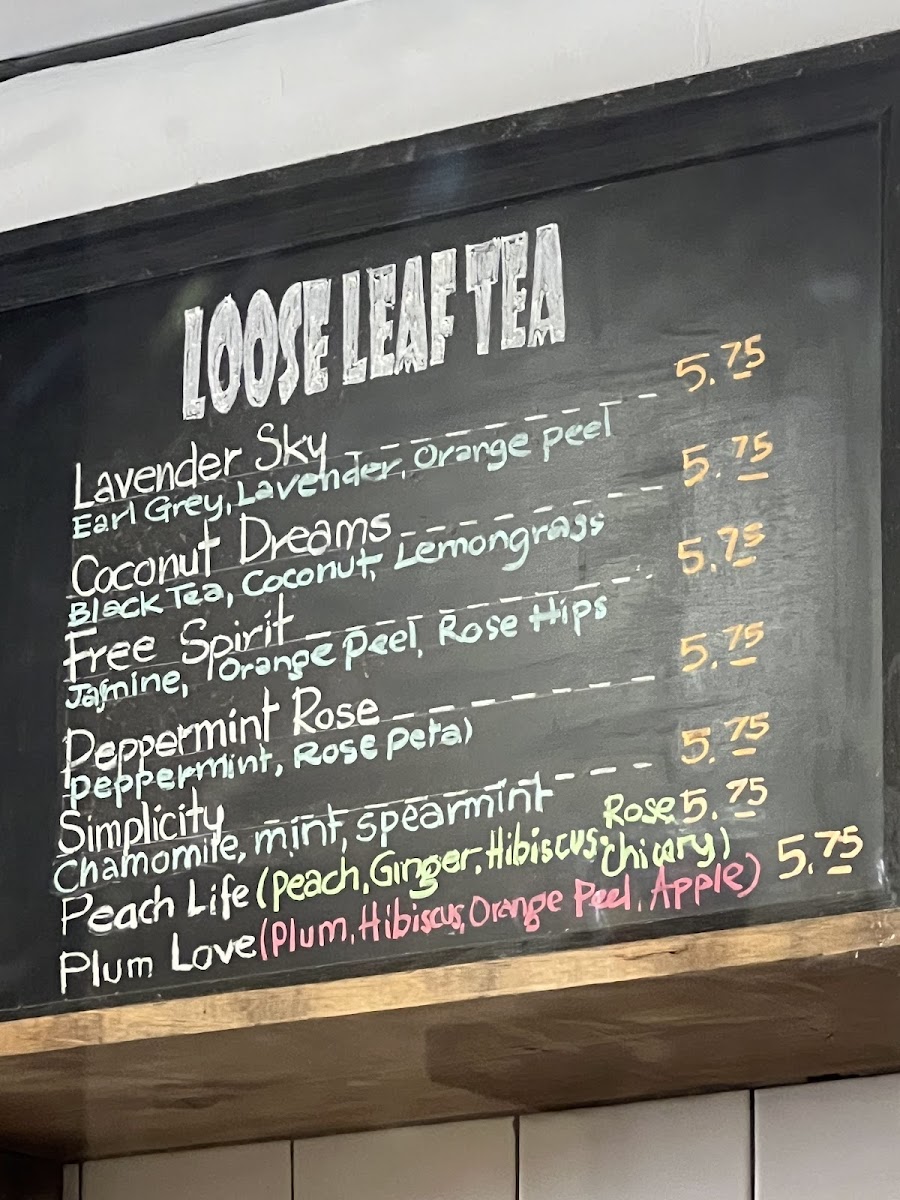 LOOSE LEAF TEA
Lavender Sky ------- 5.75
Earl Grey, Lavender, Orange peel
Coconut Dreams ------- 5.75
Black Tea, Coconut, Lemongrass
Free Spirit ------- 5.75
Jasmine, Orange Peel, Rose Hips
Peppermint Rose ------- 5.75
Peppermint, Rose petal
Simplicity ------- 5.75
Chamomile, mint, spearmint
Peach Life (Peach, Ginger, Hibiscus, Rose, Chicary) 5.75
Plum Love (Plum, Hibiscus, Orange Peel, Apple) 5.75